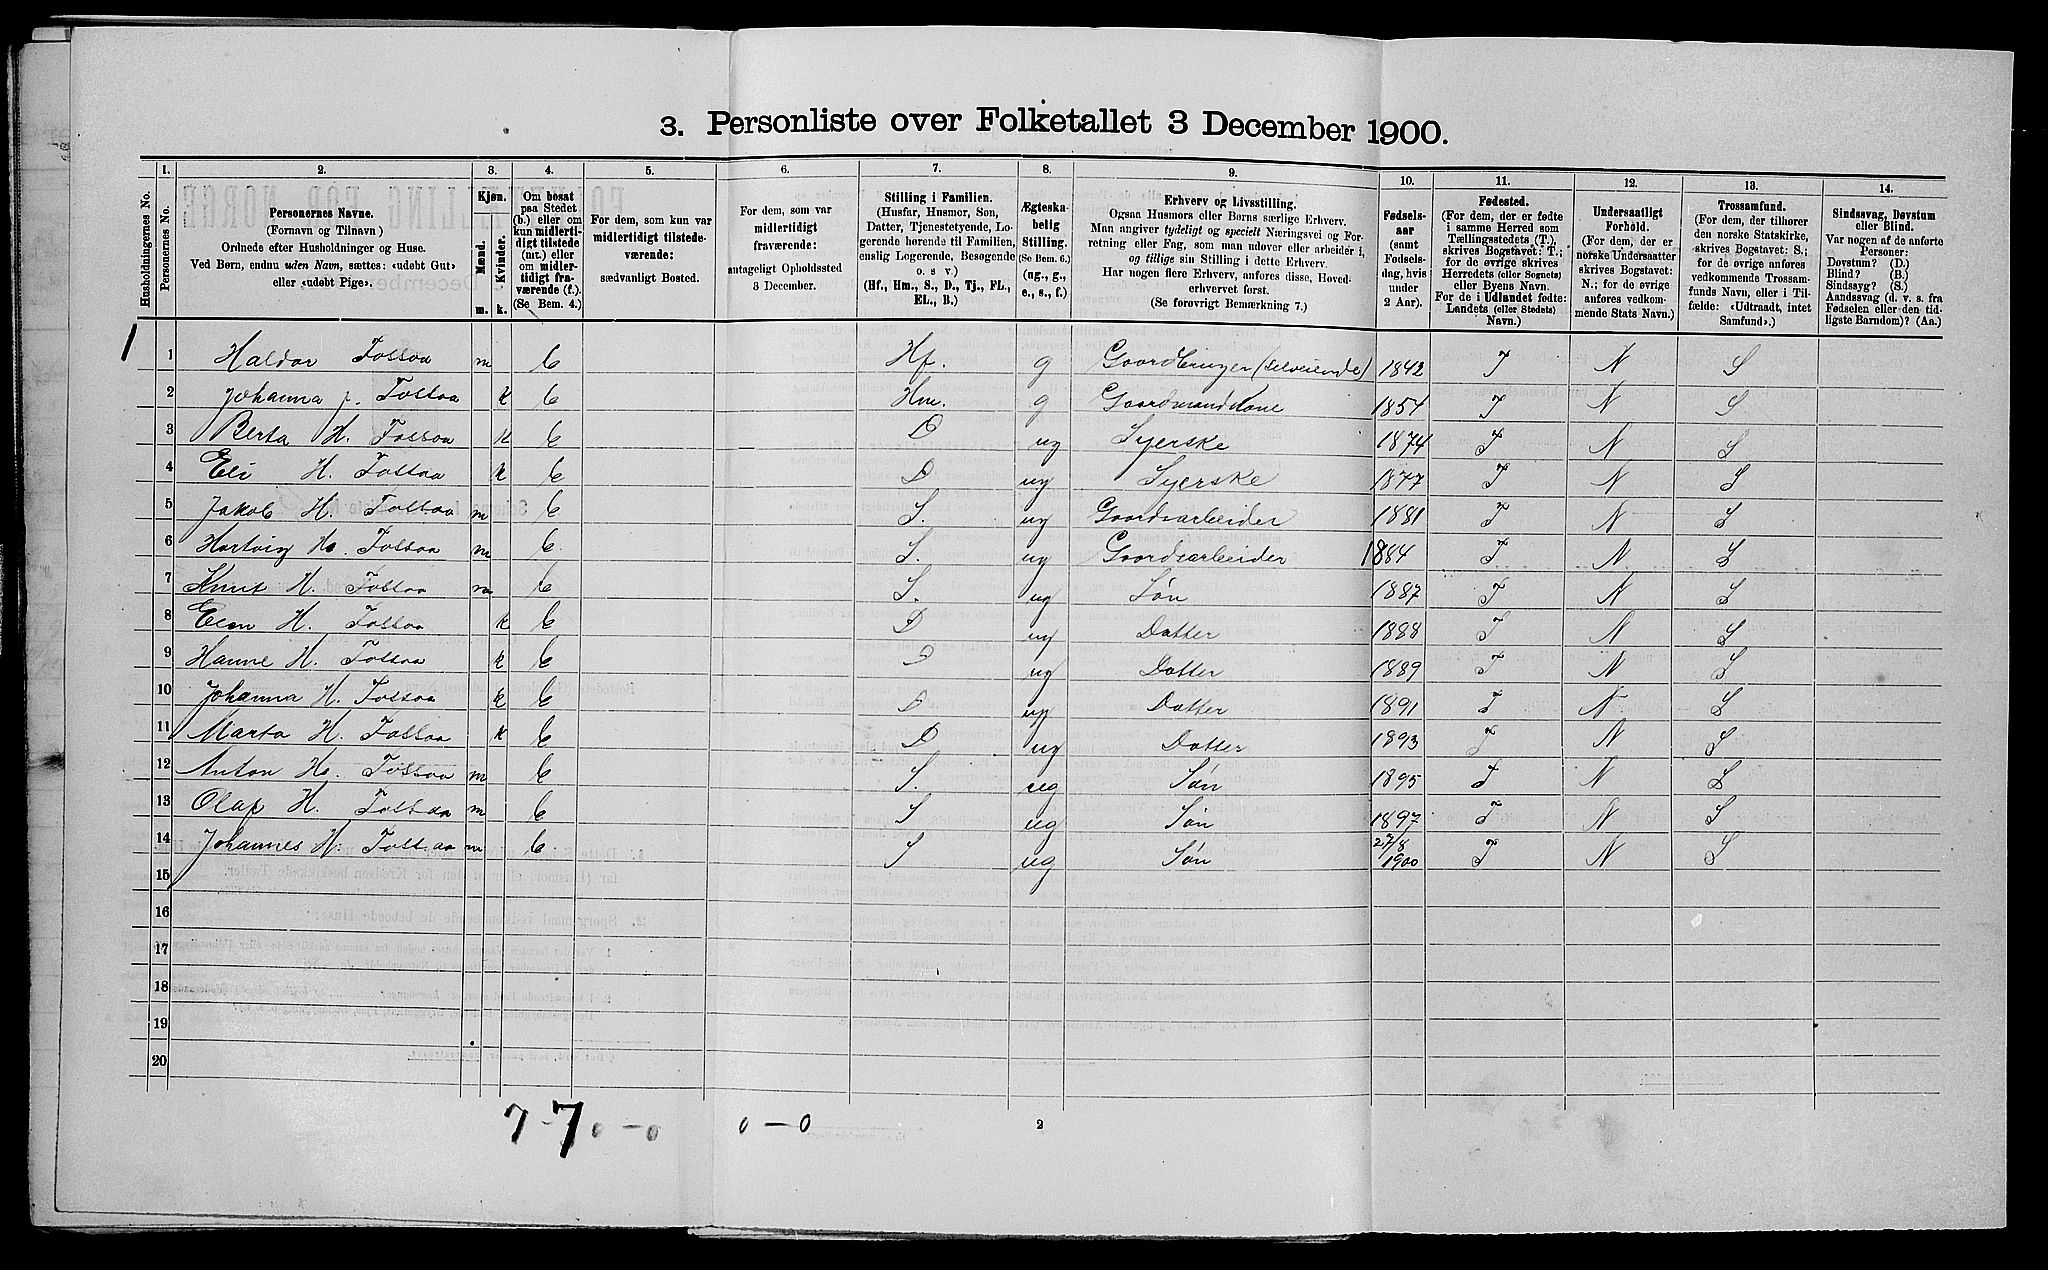 3. Personliste over Folketallet 3 December 1900.
1. 2. 3. 4. 5. 6. 7. 8. 9. 10. 11. 12. 13. 14.
Husholdningernes No.
Personernes No.
Personernes Navne.
(Fornavn og Tilnavn)
Ordnede efter Husholdninger og Huse.
Ved Børn, endnu uden Navn, sættes: «udøbt Gut»
eller «udøbt Pige».
Kjøn.
Mænd. Kvinder.
m. k.
Om bosat
paa Stedet
(b.) eller om
kun midlerti-
digt tilstede
(mt.) eller
om midler-
tidigt fra-
værende (f.).
(Se Bem. 4.)
For dem, som kun var
midlertidigt tilstede-
værende:
sædvanligt Bosted.
For dem, som var
midlertidigt
fraværende:
antageligt Opholdssted
3 December.
Stilling i Familien.
(Husfar, Husmor, Søn,
Datter, Tjenestetyende, Lo-
gerende hørende til Familien,
enslig Logerende, Besøgende
o. s v.)
(Hf., Hm., S., D., Tj., FL.,
EL., B.)
Ægteska-
belig
Stilling.
(Se Bem. 6.)
(ug., g.,
e., s., f.)
Erhverv og Livsstilling.
Ogsaa Husmors eller Børns særlige Erhverv.
Man angiver tydeligt og specielt Næringsvei og For-
retning eller Fag, som man udøver eller arbeider i,
og tillige sin Stilling i dette Erhverv.
Har nogen flere Erhverv, anføres disse, Hoved-
erhvervet først.
(Se forøvrigt Bemærkning 7.)
Fødsels-
aar
(samt
Fødsels-
dag, hvis
under
2 Aar).
Fødested.
(For dem, der er fødte
i samme Herred som
Tællingsstedets (T.),
skrives Bogstavet: T.;
for de øvrige skrives
Herredets (eller Sognets)
eller Byens Navn.
For de i Udlandet fødte:
Landets (eller Stedets)
Navn.)
Undersaatligt
Forhold.
(For dem, der er
norske Undersaatter
skrives Bogstavet:
N.; for de øvrige
anføres vedkom-
mende Stats Navn.)
Trossamfund.
(For dem, der tilhører
den norske Statskirke,
skrives Bogstavet: S.;
for de øvrige anføres
vedkommende Trossam-
funds Navn, eller i Til-
fælde: «Udtraadt, intet
Samfund».)
Sindssvag, Døvstum
eller Blind.
Var nogen af de anførte
Personer:
Døvstum? (D.)
Blind? (B.)
Sindssyg? (S.)
Aandssvag (d. v. s. fra
Fødselen eller den tid-
ligste Barndom)? (Aa.)
1 1 Haldor Fossaa m b Hf. g Gaardbruger (selveiende) 1842 T N S
2 Johanna J. Fossaa k b Hm. g Gaardmandkone 1854 T N S
3 Berta H. Fossaa k b D ug Syerske 1874 T N S
4 Eli H. Fossaa k b D ug Syerske 1877 T N S
5 Jakob H. Fossaa m b S. ug Gaardsarbeider 1881 T N S
6 Hartvig H. Fossaa m b S. ug Gaardsarbeider 1884 T N S
7 Knut H. Fossaa m b S. ug Søn 1887 T N S
8 H. Fossaa k b D ug Datter 1888 T N S
9 Hanne H. Fossaa k b D ug Datter 1889 T N S
10 Johanna H. Fossaa k b D ug Datter 1891 T N S
11 Marta H. Fossaa k b D ug Datter 1893 T N S
12 Anton H. Fossaa m b S. ug Søn 1895 T N S
13 Olaf H. Fossaa m b S ug Søn 1897 T N S
14 Johannes H. Fossaa m b. S ug Søn 27/8 1900 T N S
15
16
17
18
19
20
7-7 0-0 0-0 2